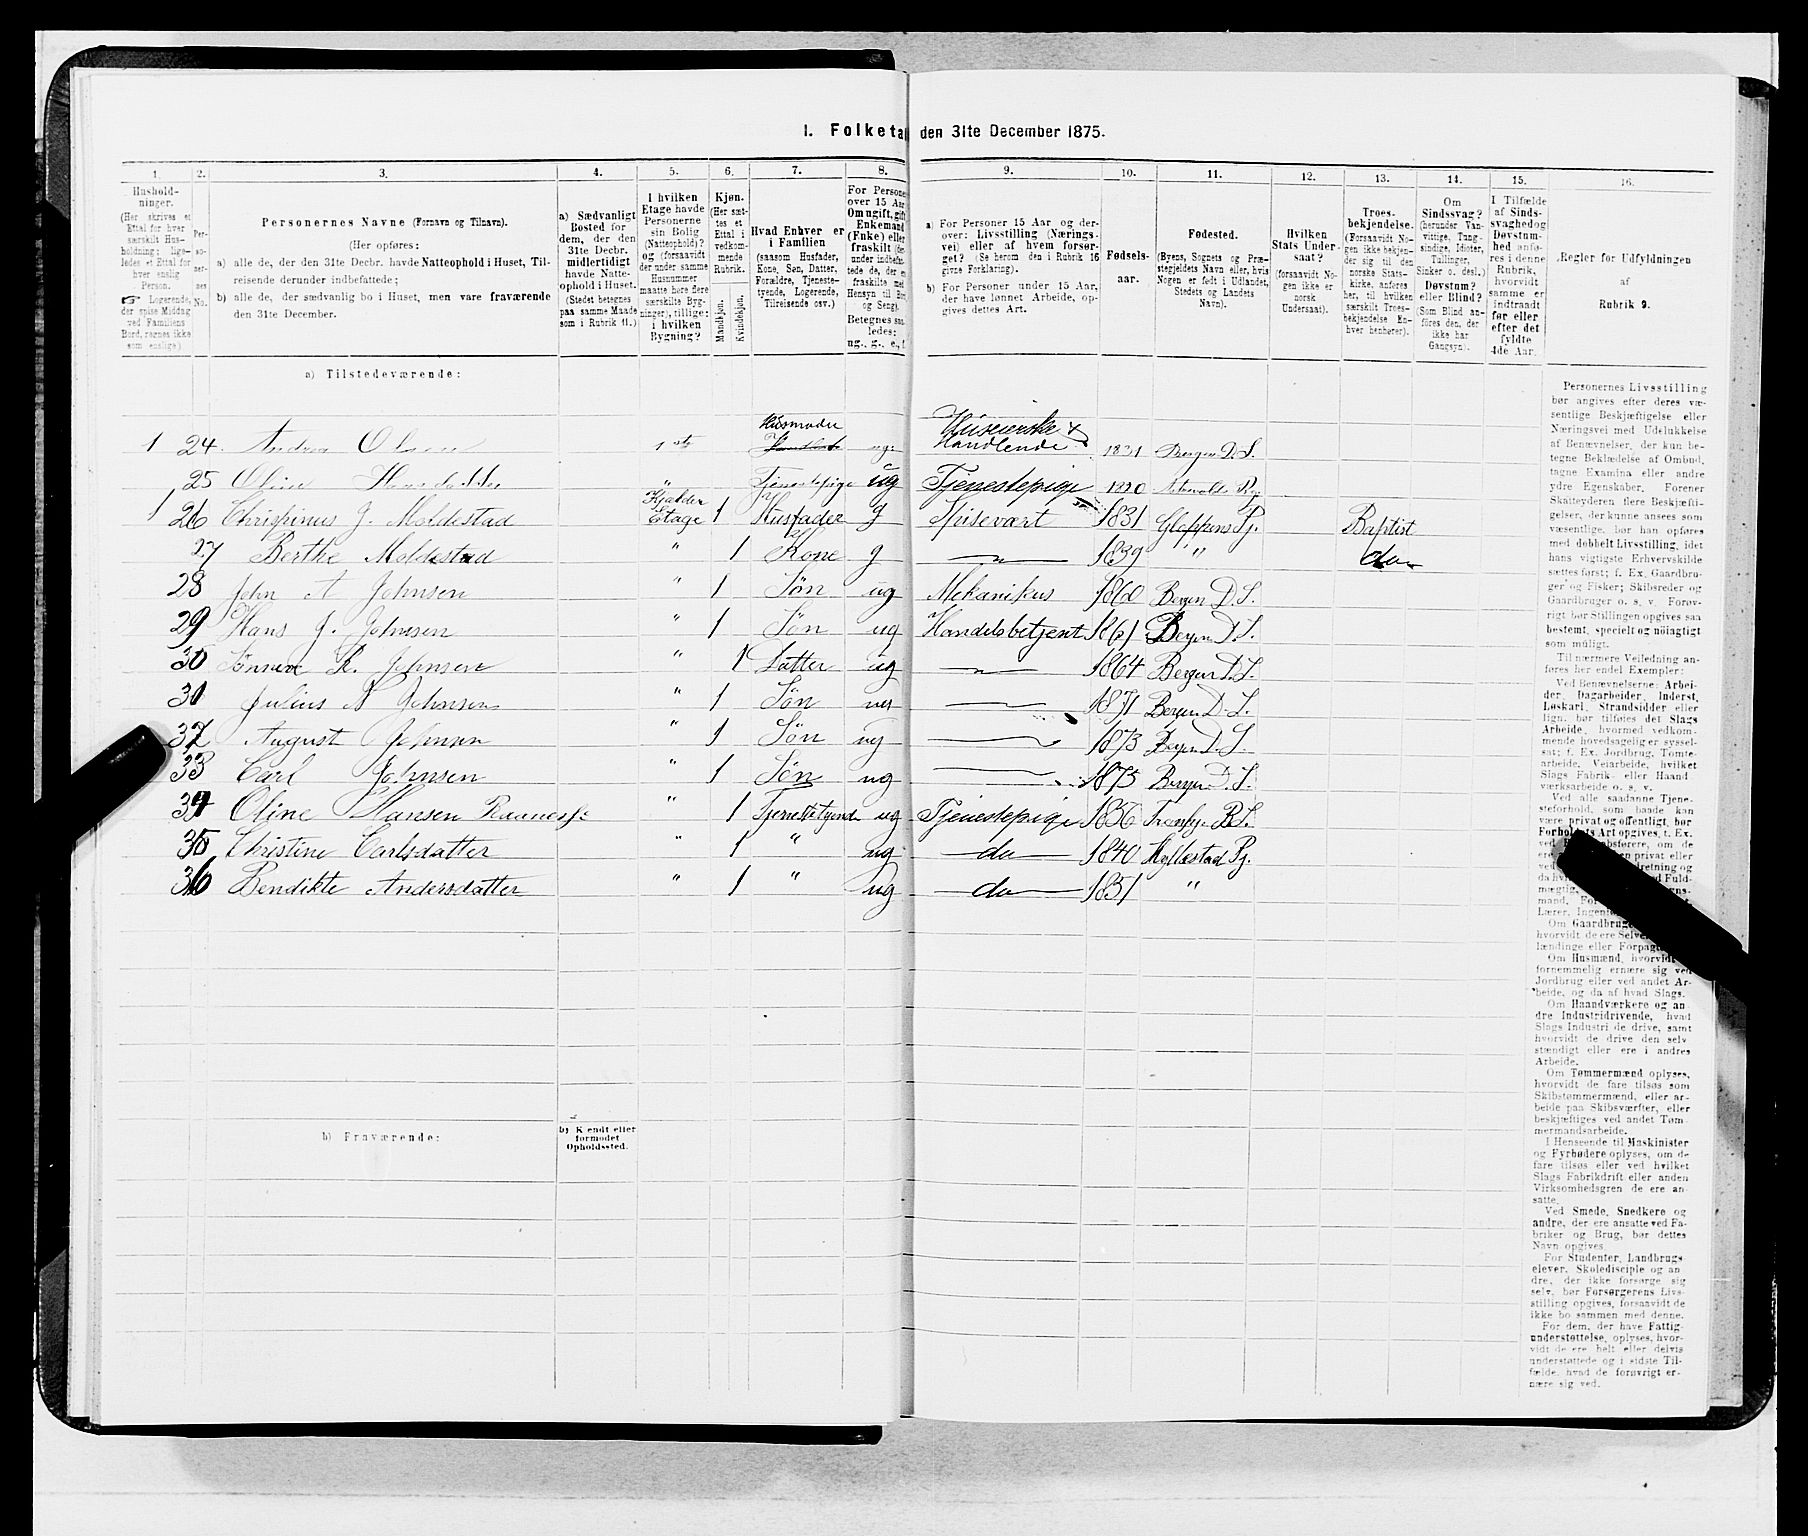 I. Folketa den 31te December 1875.
1. 2. 3. 4. 5. 6. 7. 8. 9. 10. 11. 12. 13. 14. 15. 16.
Hushold-
ninger.
(Her skrives et
Ettal for hver
særskilt Hus-
holdning; lige-
ledes et Ettal for
hver enslig
Person.
Logerende,
der spise Middag
ved Familiens
Bord, regnes ikke
som enslige)
Per-
so-
ner-
nes
No.
Personernes Navne (Fornavn og Tilnavn).
(Her opføres:
a) alle de, der den 31te Decbr. havde Natteophold i Huset, Til-
reisende derunder indbefattede;
b) alle de, der sædvanlig bo i Huset, men vare fraværende
den 31te December.
a) Sædvanligt
Bosted for
dem, der den
31te Decbr.
midlertidigt
havde Natte-
ophold i Huset.
(Stedet betegnes
paa samme Maade
som i Rubrik 11.)
I hvilken
Etage havde
Personerne
sin Bolig
(Natteophold)?
og (forsaavidt
der under samme
Husnummer
maatte høre flere
særskilte Byg-
ninger), tillige:
i hvilken
Bygning?
Kjøn.
(Her sæt-
tes et
Ettal i
vedkom-
mende
Rubrik.
Mandkjøn.
Kvindekjøn.
Hvad Enhver er
i Familien
(saasom Husfader,
Kone, Søn, Datter,
Forældre, Tjeneste-
tyende, Logerende,
Tilreisende osv.)
For Persone
over 15 Aar
Om ugift, gift
Enkemand
(Enke) eller
fraskilt
Betegnes saa-
ledes:
ug., g., e., f.
a) For Personer 15 Aar og der-
over: Livsstilling (Nærings-
vei) eller af hvem forsør-
get? (Se herom den i Rubrik 16
givne Forklaring).
b) For Personer under 15 Aar,
der have lønnet Arbeide, op-
gives dettes Art.
Fødsels-
aar.
Fødested.
(Byens, Sognets og Præ-
stegjeldets Navn eller, hvis
Nogen er født i Udlandet,
Stedets og Landets
Navn).
Hvilken
Stats Under-
saat?
(forsaavidt No-
gen ikke er
norsk
Undersaat).
Troes-
bekjendelse.
(Forsaavidt No-
gen ikke bekjen-
der sig til den
norske Stats-
kirke, anføres
her, til hvilken
særskilt Troes-
bekjendelse En-
hver henhører).
Om
Sindssvag?
(herunder Van-
vittige, Tung-
sindige, Idioter,
Tullinger,
Sinker o. desl.)
Døvstum?
eller Blind?
(Som Blind an-
føres den, der
ikke har
Gangsyn).
I Tilfælde
af Sinds-
svaghed og
Døvstum-
hed anfø-
res i denne
Rubrik,
hvorvidt
samme er
indtraadt
før eller
efter det
fyldte
4de Aar.
Regler for Udfyldningen
af
Rubrik 9.
a) Tilstedeværende:
1 24 Andrea Olsen 1ste Husmoder ug Huseierske & Handlende 1831 Bergen D. S.
25 Oline " Tjenestepige ug Tjenestepige 1820
1 26 Chrispinus J. Moldestad Kjælder Etage 1 Husfader g Spisevært 1831 Gloppens Pj. Baptist
27 Berthe Moldestad " 1 Kone g — " — 1839 " do
28 John A Johnsen " 1 Søn ug Mekanikus 1860 Bergen D. S.
29 Hans J. Johnsen " 1 Søn ug Handelsbetjent 1861 Bergen D. S.
30 R. Johnsen " 1 Datter ug — " — 1864 Bergen D. S.
31 Julius A Johnsen " 1 Søn ug 1871 Bergen D. S.
32 August Johnsen " 1 Søn ug 1873 Bergen D. S.
33 Carl Johnsen " 1 Søn ug 1875 Bergen D. S.
34 Oline Hansen " 1 Tjenestetyende ug Tjenestepige 1856
35 Christine Carlsdatter " 1 " ug do 1840 Pj.
36 Bendikte Andersdatter " 1 " ug do 1851 "
b) Fraværende:
b) Kjendt eller
formodet
Opholdssted.
Personernes Livsstilling
bør angives efter deres væ-
sentlige Beskjæftigelse eller
Næringsvei med Udelukkelse
af Benævnelser, der kun be-
tegne Beklædelse af Ombud,
tagne Examina eller andre
ydre Egenskaber. Forener
Skatteyderen flere Beskjæfti-
gelser, der kunne ansees som
væsentlige, bør han opføres
med dobbelt Livsstilling, idet
hans vigtigste Erhvervskilde
sættes først; f. Ex. Gaardbru-
ger og Fisker; Skibsreder og
Gaardbruger o. s. v. Forøv-
rigt bør Stillingen opgives saa
bestemt, specielt og nøiagtigt
som muligt.
Til nærmere Veiledning an-
føres her endel Exempler:
Ved Benævnelserne: Arbei-
der, Dagarbeider, Inderst,
Løskarl, Strandsidder eller
lign. bør tilføies det Slags
Arbeide, hvormed vedkom-
mende hovedsagelig er syssel-
sat; f. Ex. Jordbrug, Tømte-
arbeide, Veiarbeide, hvilket
Slags Fabrik- eller Haand-
værksarbeide o. s. v.
Ved alle saadanne Tjene-
steforhold, som baade kan
være privat og offentligt, bør
Forholdets Art opgives, f. Ex.
Om Husmænd, hvorvidt
fornemmelig ernære sig ved
Jordbrug eller ved andet Ar-
beide, og da af hvad Slags.
Om Haandværkere og an-
dre Industridrivende, hvad
Slags Industri de drive, samt
hvorvidt de drive den selv-
stændigt eller ere i andres
Arbeide.
Om Tømmermænd oplyses,
hvorvidt de fare tilsøs som
Skibstømmermænd, eller ar-
beide paa Skibsværfter, eller
beskjæftiges ved andet Tøm-
mermandsarbeide.
I Henseende til Maskinister
og Fyrbødere oplyses, om de
fare tilsøs eller ved hvilket
Slags Fabrikdrift eller anden
Virksomhedsgren de ere an-
satte.
Ved Smede, Snedkere og
andre, der ere ansatte ved Fa-
briker og Brug, bør dettes
Navn opgives.
For Studenter, Landbrugs-
elever, Skoledisciple og an-
dre, der ikke forsørge sig
selv, bør Forsørgerens Livs-
stilling opgives, forsaavidt de
ikke bo sammen med denne.
For dem, der have Fattig-
understøttelse, oplyses, hvor-
vidt de ere helt eller delvis
understøttede og i sidste Til-
fælde, hvad de forøvrigt er-
nære sig ved.